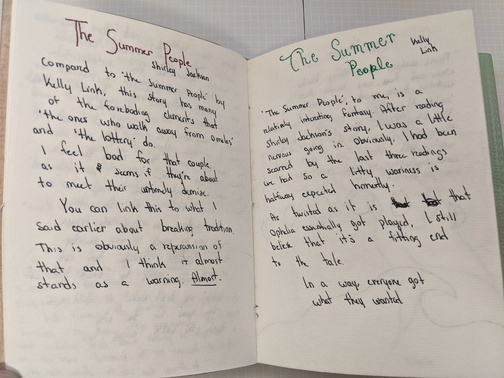 The Summer People
Shirley Jackson
compared to 'the Summer People' by
Kelly Link, this story has many
of the foreboding elements that
'the ones who walk away from omelas'
and 'the lottery' do.
I feel bad for that couple
as it seems if they're about
to meet their untimely demise.
You can link this to what I
said earlier about breaking tradition
This is obviously a repercussion of
that and I think it almost
stands as a warning. Almost.
The Summer
People
Kelly
Link
'The Summer People', to me, is a
relatively interesting fantasy. After reading
Shirley Jackson's story, I was a little
nervous going in. Obviously, I had been
scarred by the last three readings
we had so a little wariness is
halfway expected honestly.
As twisted as it is that
Ophelia essentially got played, I still
believe that it's a fitting end
to the tale.
In a way, everyone got
what they wanted